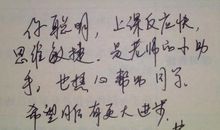 你聪明，上课反应快，
思维敏捷。是老师的小助
手，也热心帮助同学。
希望日后有更大进步。